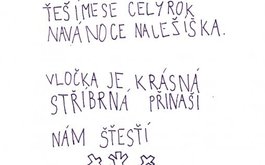 TEŠÍMESE CELÝROK
NAVÁNOCE NALEŽÍŠKA.
VLOČKA JE KRÁSNÁ
STŘÍBRNÁ PŘINAŠÍ
NÁM ŠTEŠTÍ